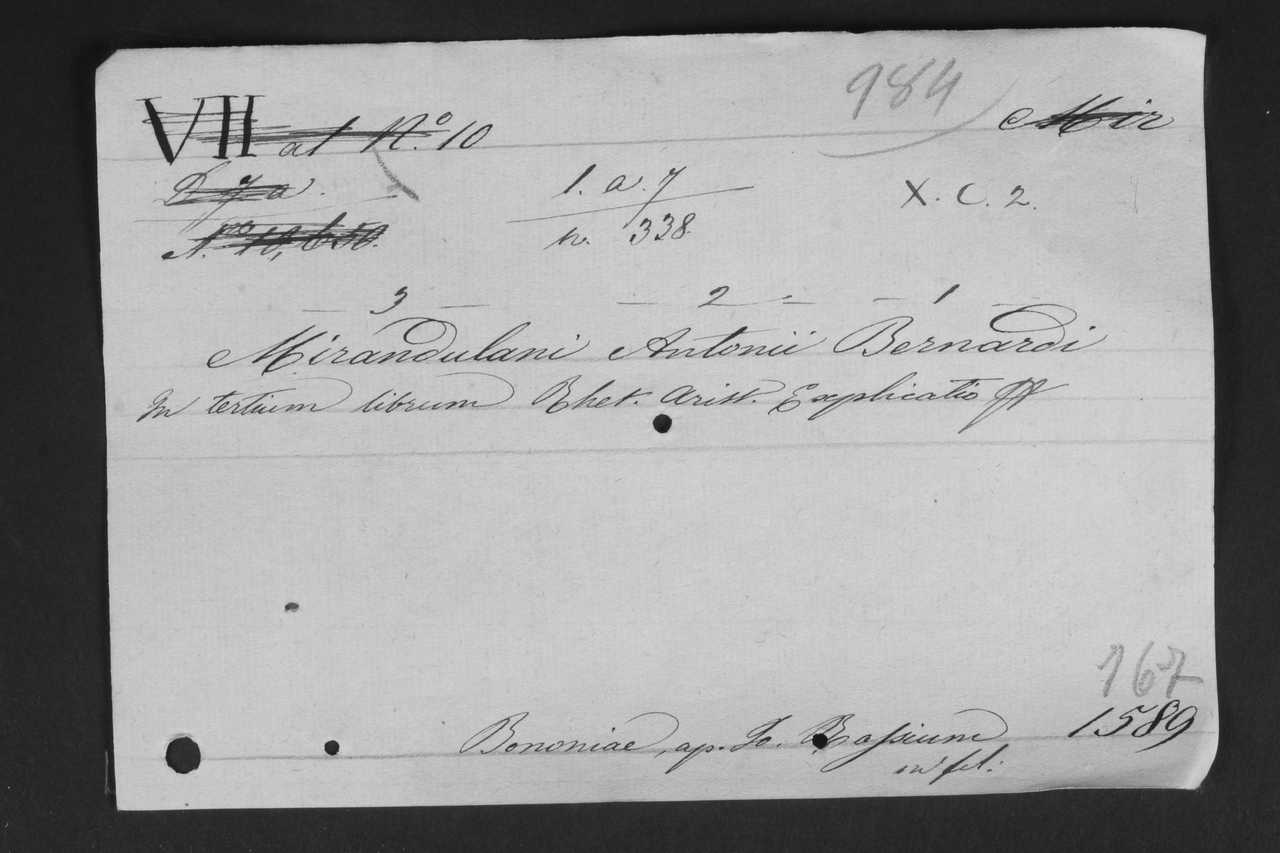 984
VII al N.º 10
Mir
D. 7 a.
1. a. 7
X. C. 2.
N.º 10,
n. 338.
3 — 2 — 1
Mirandulani Antonii Bernardi
In tertium librum Rhet. Arist. Explicatio
167
Bononiae, ap. Jo. Rossium 1589
in fol: